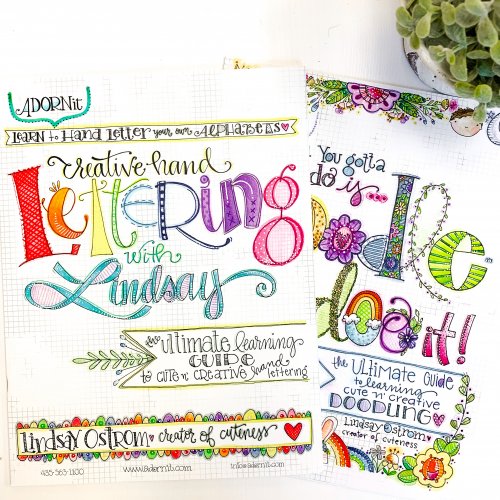 ADORNit
LEARN to HAND LETTER your own ALPHABETS
creative hand
LETTERING
with
Lindsay
the Ultimate learning
GUIDE
to CUTE n' CREATIVE hand
lettering
Lindsay Ostrom creator of cuteness
435-563-1100
www.adornit.com
info@adornit.com
You gotta
do is...
oodle
doe it!
the ULTIMATE GUIDE
to learning
CUTE n' CREATIVE
DOODLING
Lindsay Ostrom
creator of cuteness